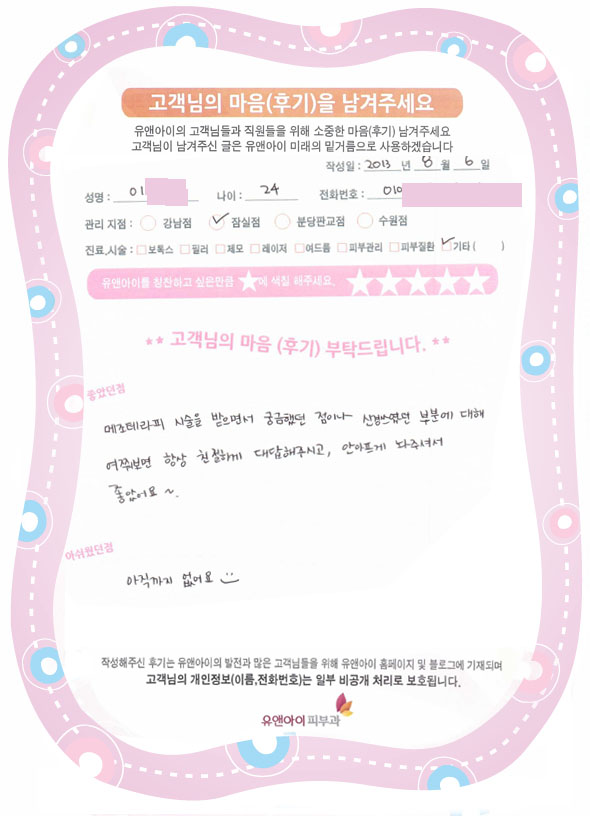 고객님의 마음(후기)을 남겨주세요
유앤아이의 고객님들과 직원들을 위해 소중한 마음(후기) 남겨주세요
고객님이 남겨주신 글은 유앤아이 미래의 밑거름으로 사용하겠습니다
작성일 : 2013 년 8 월 6 일
성명 : 이 나이 : 24 전화번호 : 010
관리 지점 : 강남점 잠실점 분당판교점 수원점
진료,시술 : 보톡스 필러 제모 레이저 여드름 피부관리 피부질환 기타 ( )
유앤아이를 칭찬하고 싶은만큼 ★에 색칠 해주세요. ★★★★★
** 고객님의 마음 (후기) 부탁드립니다. **
좋았던점
메조테라피 시술을 받으면서 궁금했던 점이나 신경쓰였던 부분에 대해
여쭤보면 항상 친절하게 대답해주시고, 안아프게 놔주셔서
좋았어요 ~.
아쉬웠던점
아직까지 없어요
작성해주신 후기는 유앤아이의 발전과 많은 고객님들을 위해 유앤아이 홈페이지 및 블로그에 기재되며
고객님의 개인정보(이름,전화번호)는 일부 비공개 처리로 보호됩니다.
유앤아이피부과